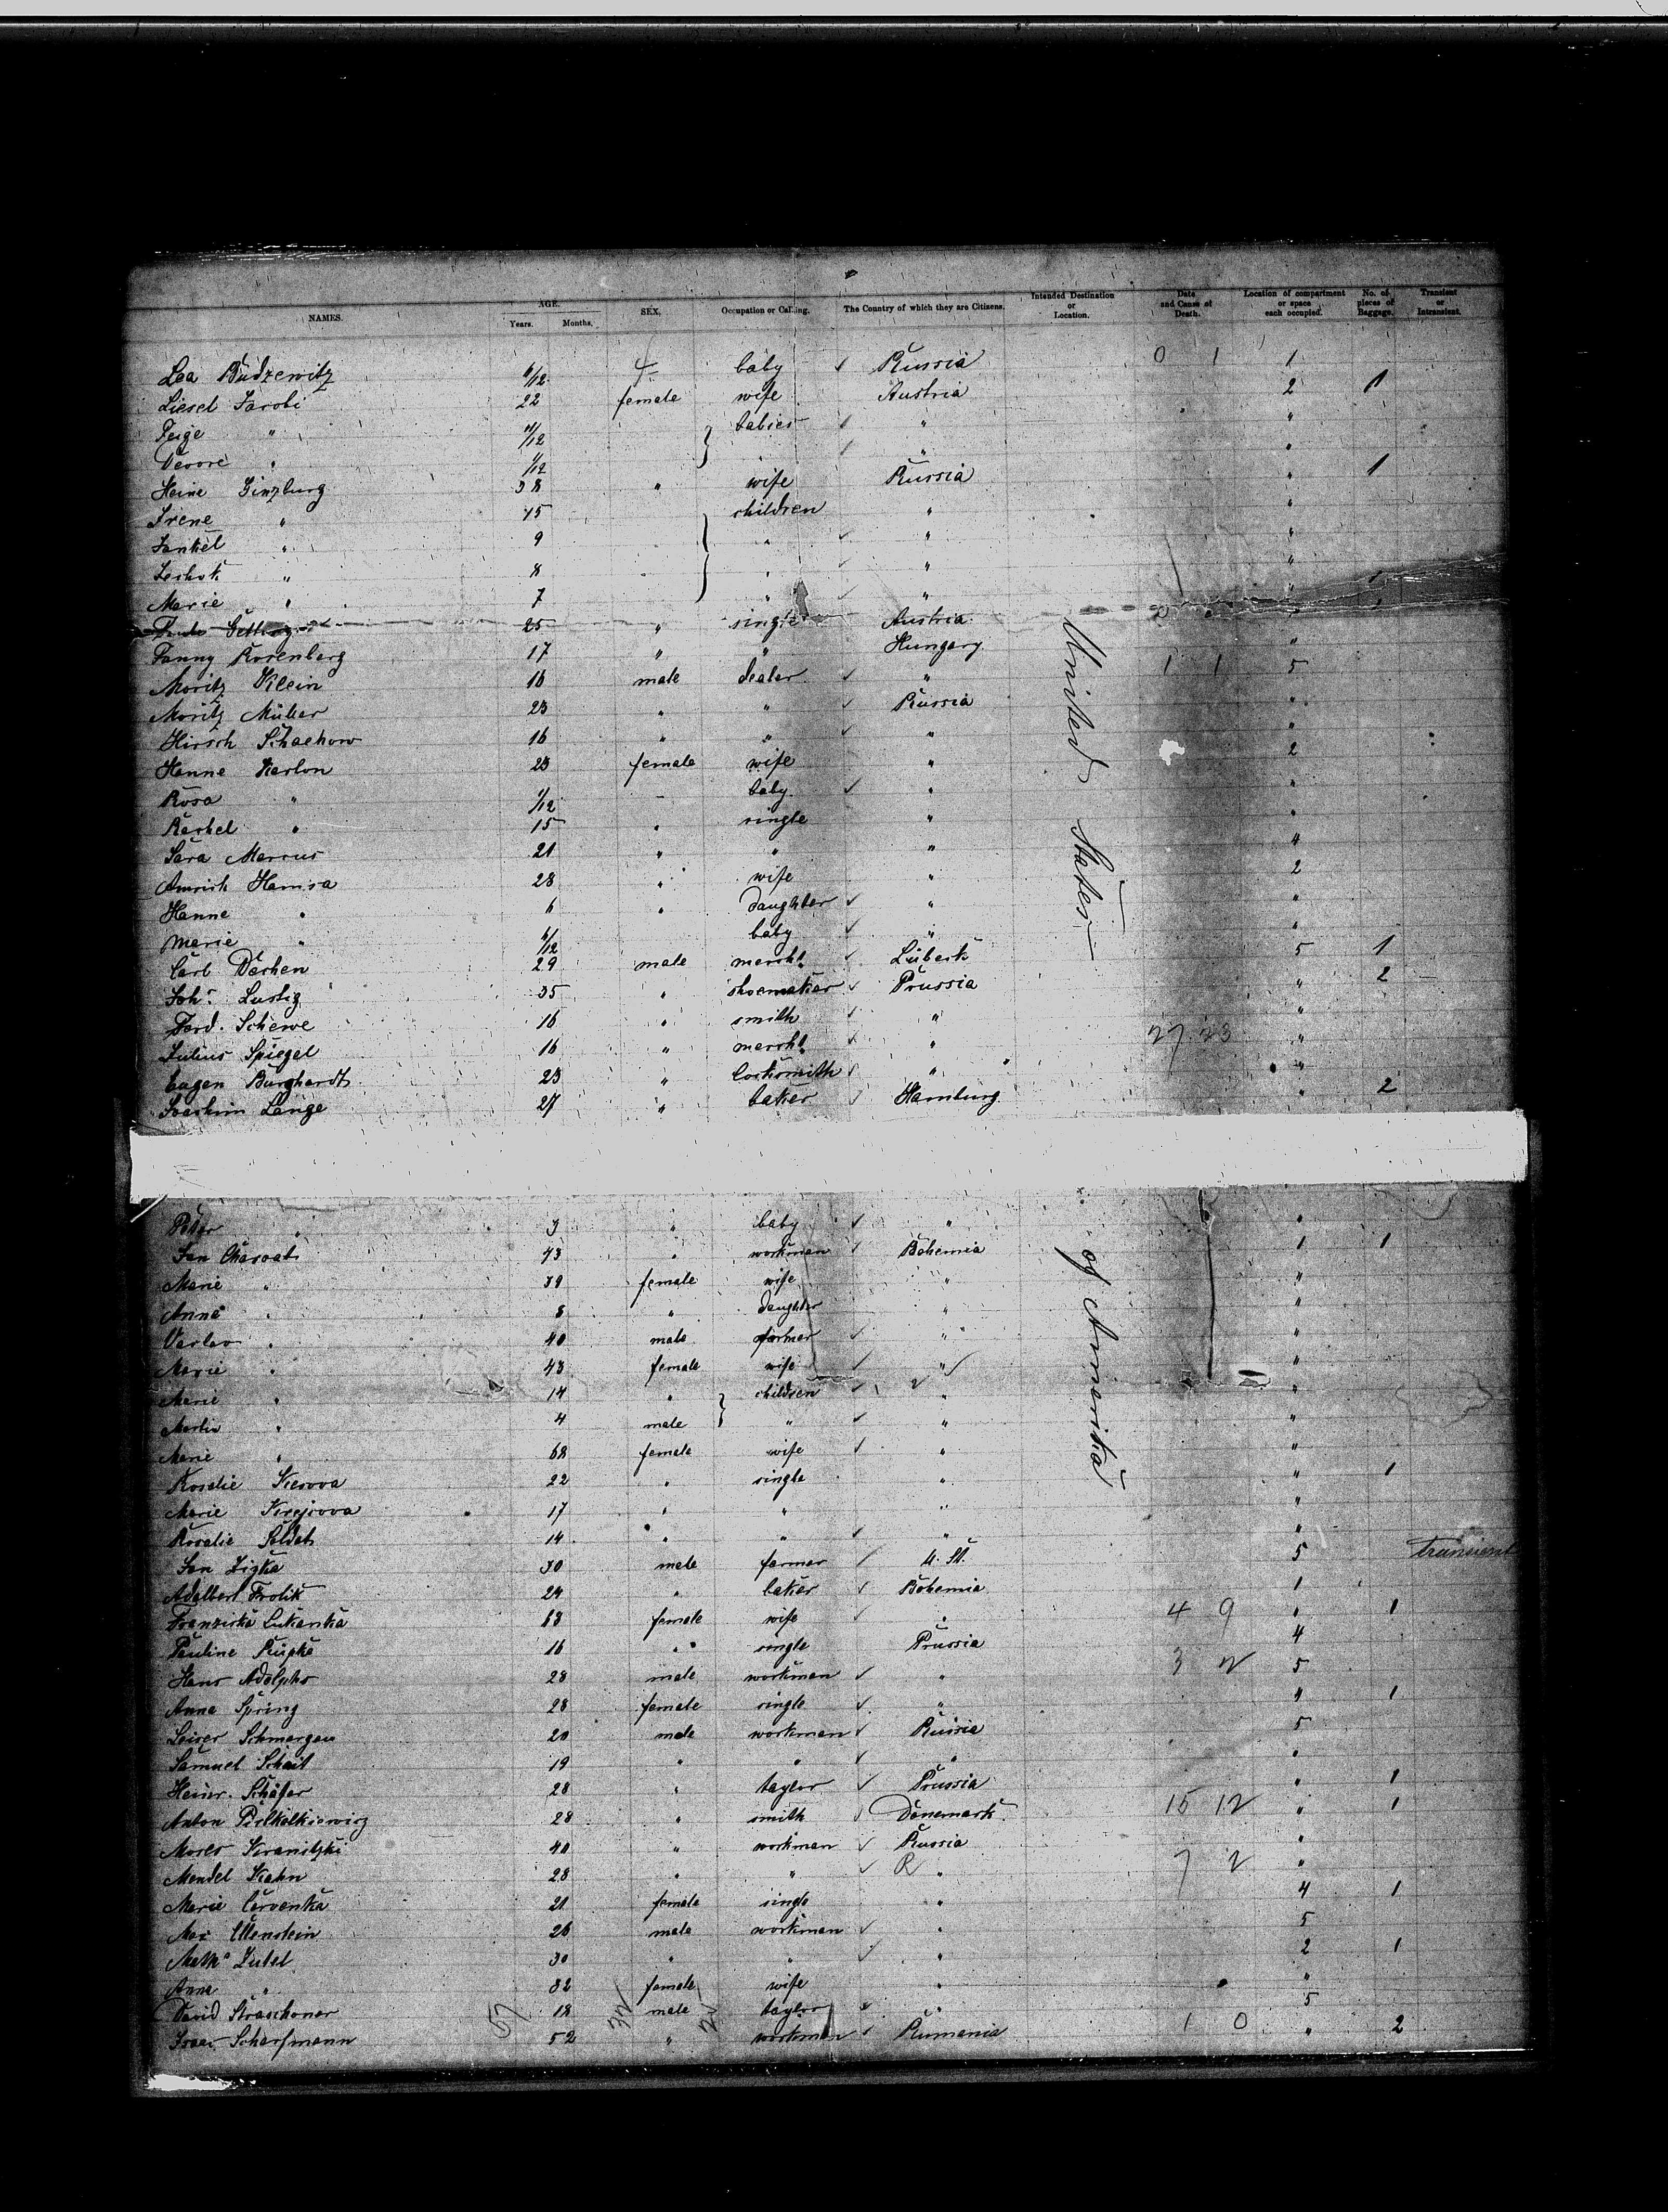 NAMES. AGE. Years. Months. SEX. Occupation or Calling. The Country of which they are Citizens. Intended Destination or Location. Date and Cause of Death. Location of compartment or space each occupied. No. of pieces of Baggage. Transient or Intransient.
Lea Budzewitz 6/12 baby ✓ Russia 0 1 1
Liesel Jacobi 22 female wife Austria 2 1
Feige " 11/12 babies " "
" 1/12 " " "
Heine Ginzburg 38 " wife Russia " 1
Irene " 15 children " "
Jankel " 9 " ✓ " "
" 8 " ✓ " "
Marie " 7 " ✓ " "
25 " single Austria
Fanny Rosenberg 17 " " Hungary "
Moritz Klein 16 male dealer ✓ " 1 1 5
Moritz Müller 23 " " ✓ Russia "
Hirsch Schachow 16 " " ✓ " "
Hanne Karlon 23 female wife " 2
Rosa " 1/12 baby ✓ " "
" 15 " single " "
Sara Marcus 21 " " " 4
Hamsa 28 " wife " 2
Hanne " 6 " daughter ✓ " "
Marie " 6/12 baby ✓ " "
Carl Dechen 29 male mercht. ✓ Lübeck 5 1
Joh. Lustig 35 " shoemaker ✓ Prussia " 2
Ferd. Schewe 16 " smith ✓ " "
Julius Spiegel 16 " mercht. ✓ " 27 23 "
Eugen Burghardt 23 " locksmith ✓ " "
Joachim Lange 27 " baker ✓ Hamburg " 2
United States
Peter " 3 " baby ✓ " "
Jan Charvat 43 " workman ✓ Bohemia 1 1
Marie " 39 female wife " "
Anna " 8 " daughter " "
Vaclav " 40 male farmer ✓ " "
Marie " 43 female wife ✓ " "
Marie " 14 " children ✓ " "
Martin " 4 male " ✓ " "
Marie " 68 female wife ✓ " "
Rosalie 22 " single " " 1
Marie Krejcova 17 " " " "
Rosalie Soldat 14 " " ✓ " "
Jan Ziska 30 male farmer ✓ U. St. 5 Transient
Adalbert Frolik 24 " baker ✓ Bohemia 1
Franziska Lukanka 63 female wife ✓ " 4 9 " 1
Pauline Kupka 16 " single Prussia 4
Hans Adolphs 28 male workman ✓ " 3 2 5
Anna Spring 28 female single ✓ " " 1
Leiser Schmargen 20 male workman ✓ Russia 5
Samuel 19 " " ✓ " "
Heinr. Schäfer 28 " taylor ✓ Prussia " 1
Anton 28 " smith ✓ Danemark 15 12 " 1
Moses Kranitzki 40 " workman ✓ Russia "
Mendel Kahn 28 " " ✓ R " 7 2 "
Marie Cervenka 21 female single " 4 1
Max Ellenstein 26 male workman ✓ " 5
30 " " ✓ " 2 1
Anna " 32 female wife " "
David Straschoner 18 male taylor ✓ " 5
Scharfmann 52 " workman ✓ Rumania 1 0 " 2
of Amerika
57 32 25